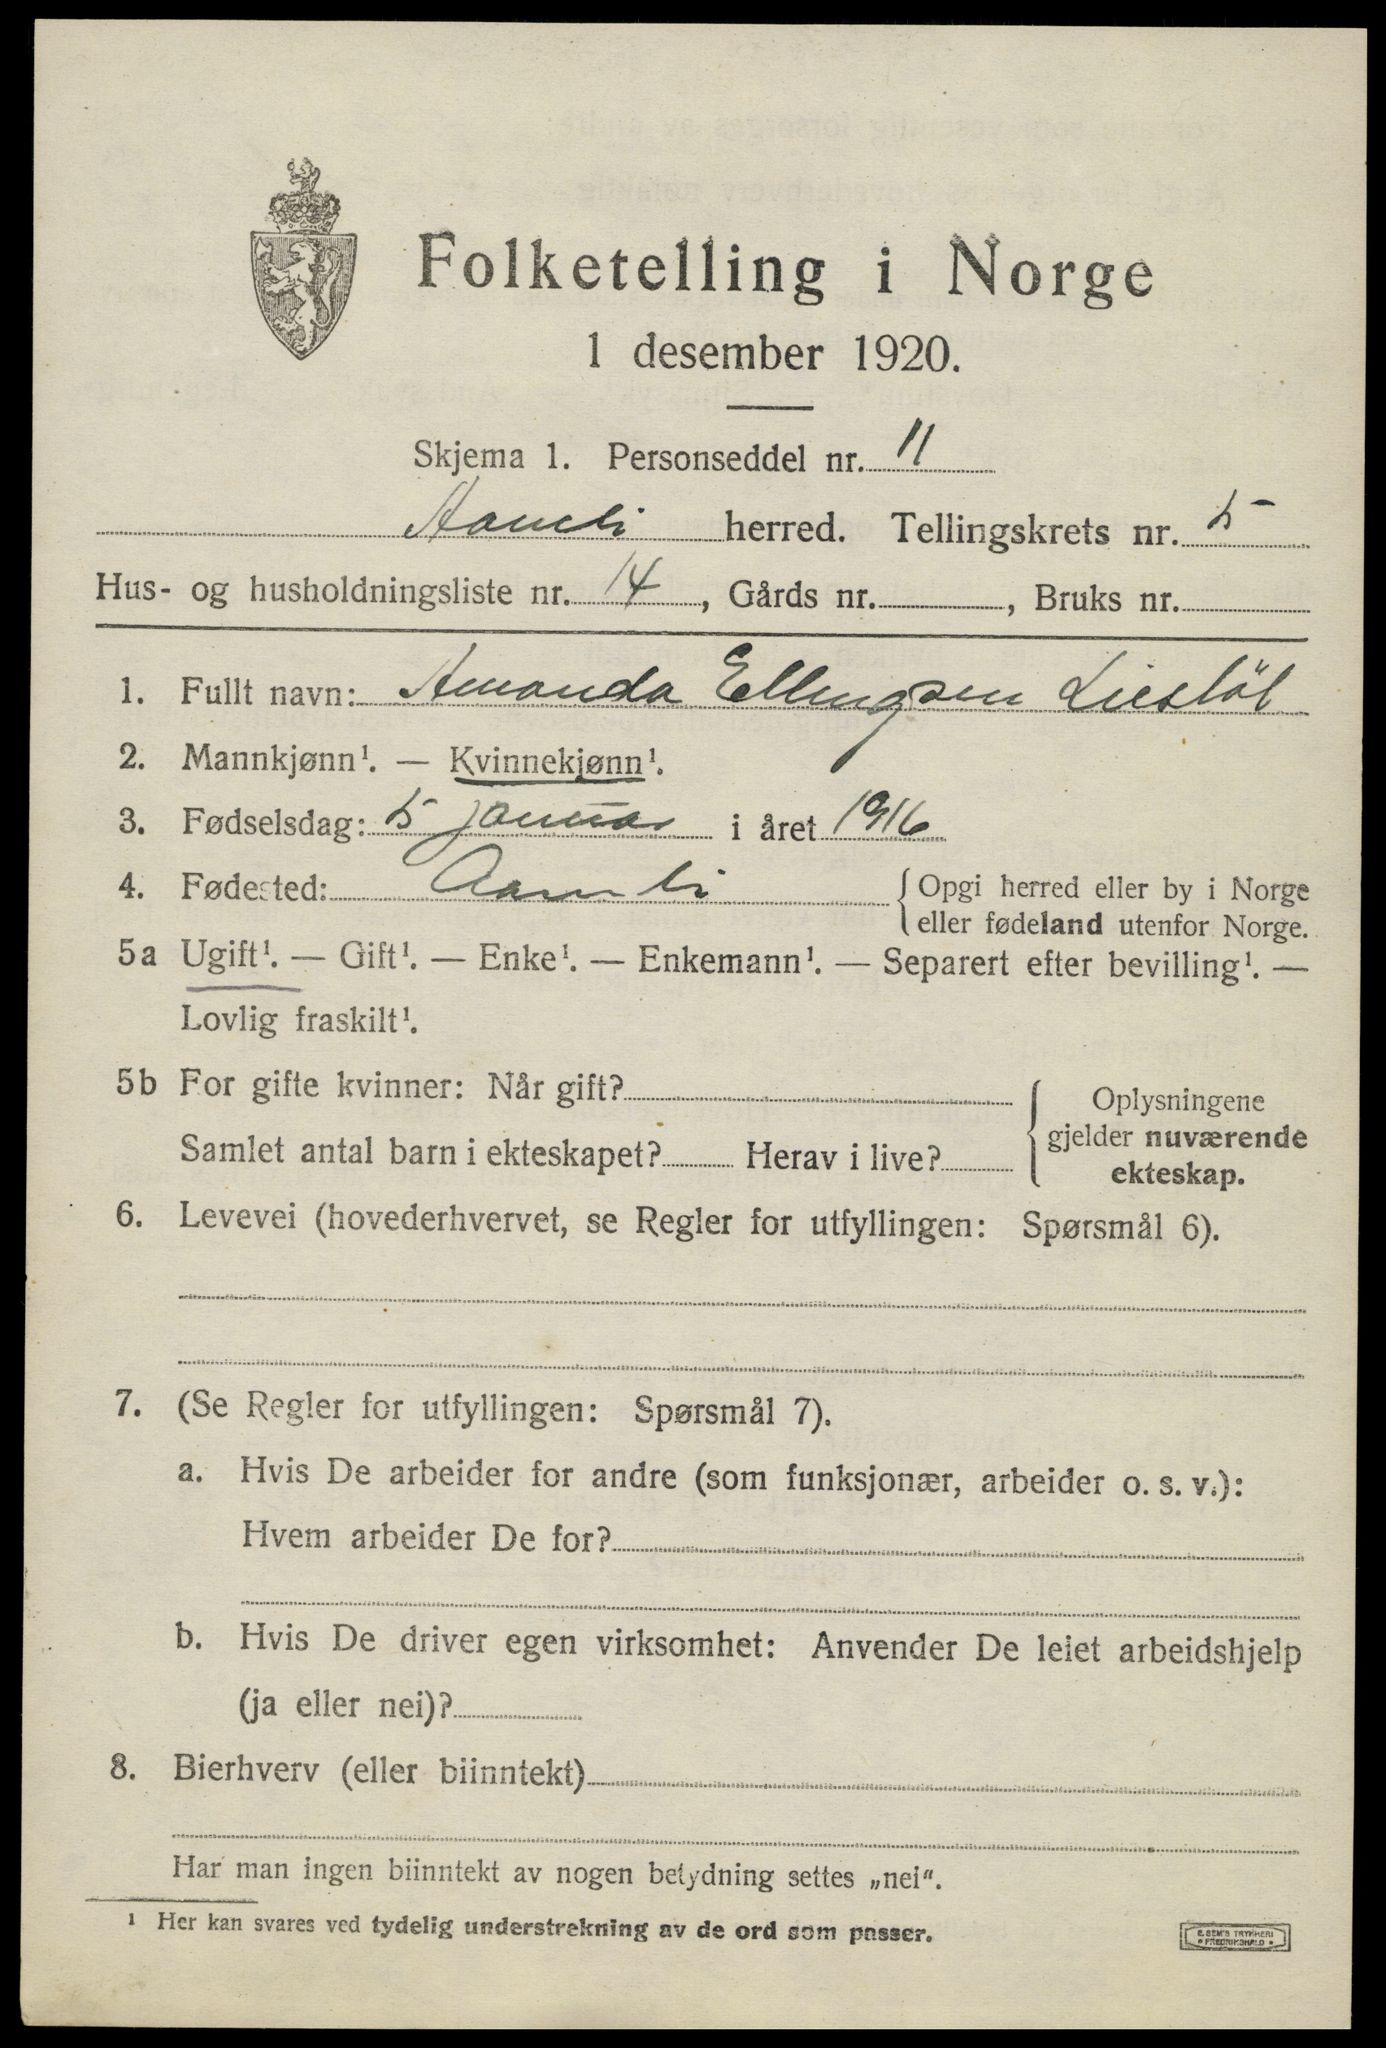 Folketelling i Norge
1 desember 1920.
Skjema 1. Personseddel nr. 11
Aamli herred. Tellingskrets nr. 5
Hus- og husholdningsliste nr. 14, Gårds nr. , Bruks nr.
1. Fullt navn: Amanda Ellingsen Liesløl
2. Mannkjønn¹. — Kvinnekjønn¹.
3. Fødselsdag: 5 januar i året 1916
4. Fødested: Aamli {Opgi herred eller by i Norge
eller fødeland utenfor Norge.
5a Ugift¹. — Gift¹. — Enke¹. — Enkemann¹. — Separert efter bevilling¹. —
Lovlig fraskilt¹.
5b For gifte kvinner: Når gift? Oplysningene
gjelder nuværende
Samlet antal barn i ekteskapet? Herav i live? ekteskap.
6. Levevei (hovederhvervet, se Regler for utfyllingen: Spørsmål 6).
7. (Se Regler for utfyllingen: Spørsmål 7).
a. Hvis De arbeider for andre (som funksjonær, arbeider o. s. v.):
Hvem arbeider De for?
b. Hvis De driver egen virksomhet: Anvender De leiet arbeidshjelp
(ja eller nei)?
8. Bierhverv (eller biinntekt)
Har man ingen biinntekt av nogen betydning settes „nei".
¹ Her kan svares ved tydelig understrekning av de ord som passer.
E. SEM'S TRYKKERI
• FREDRIKSHALD •